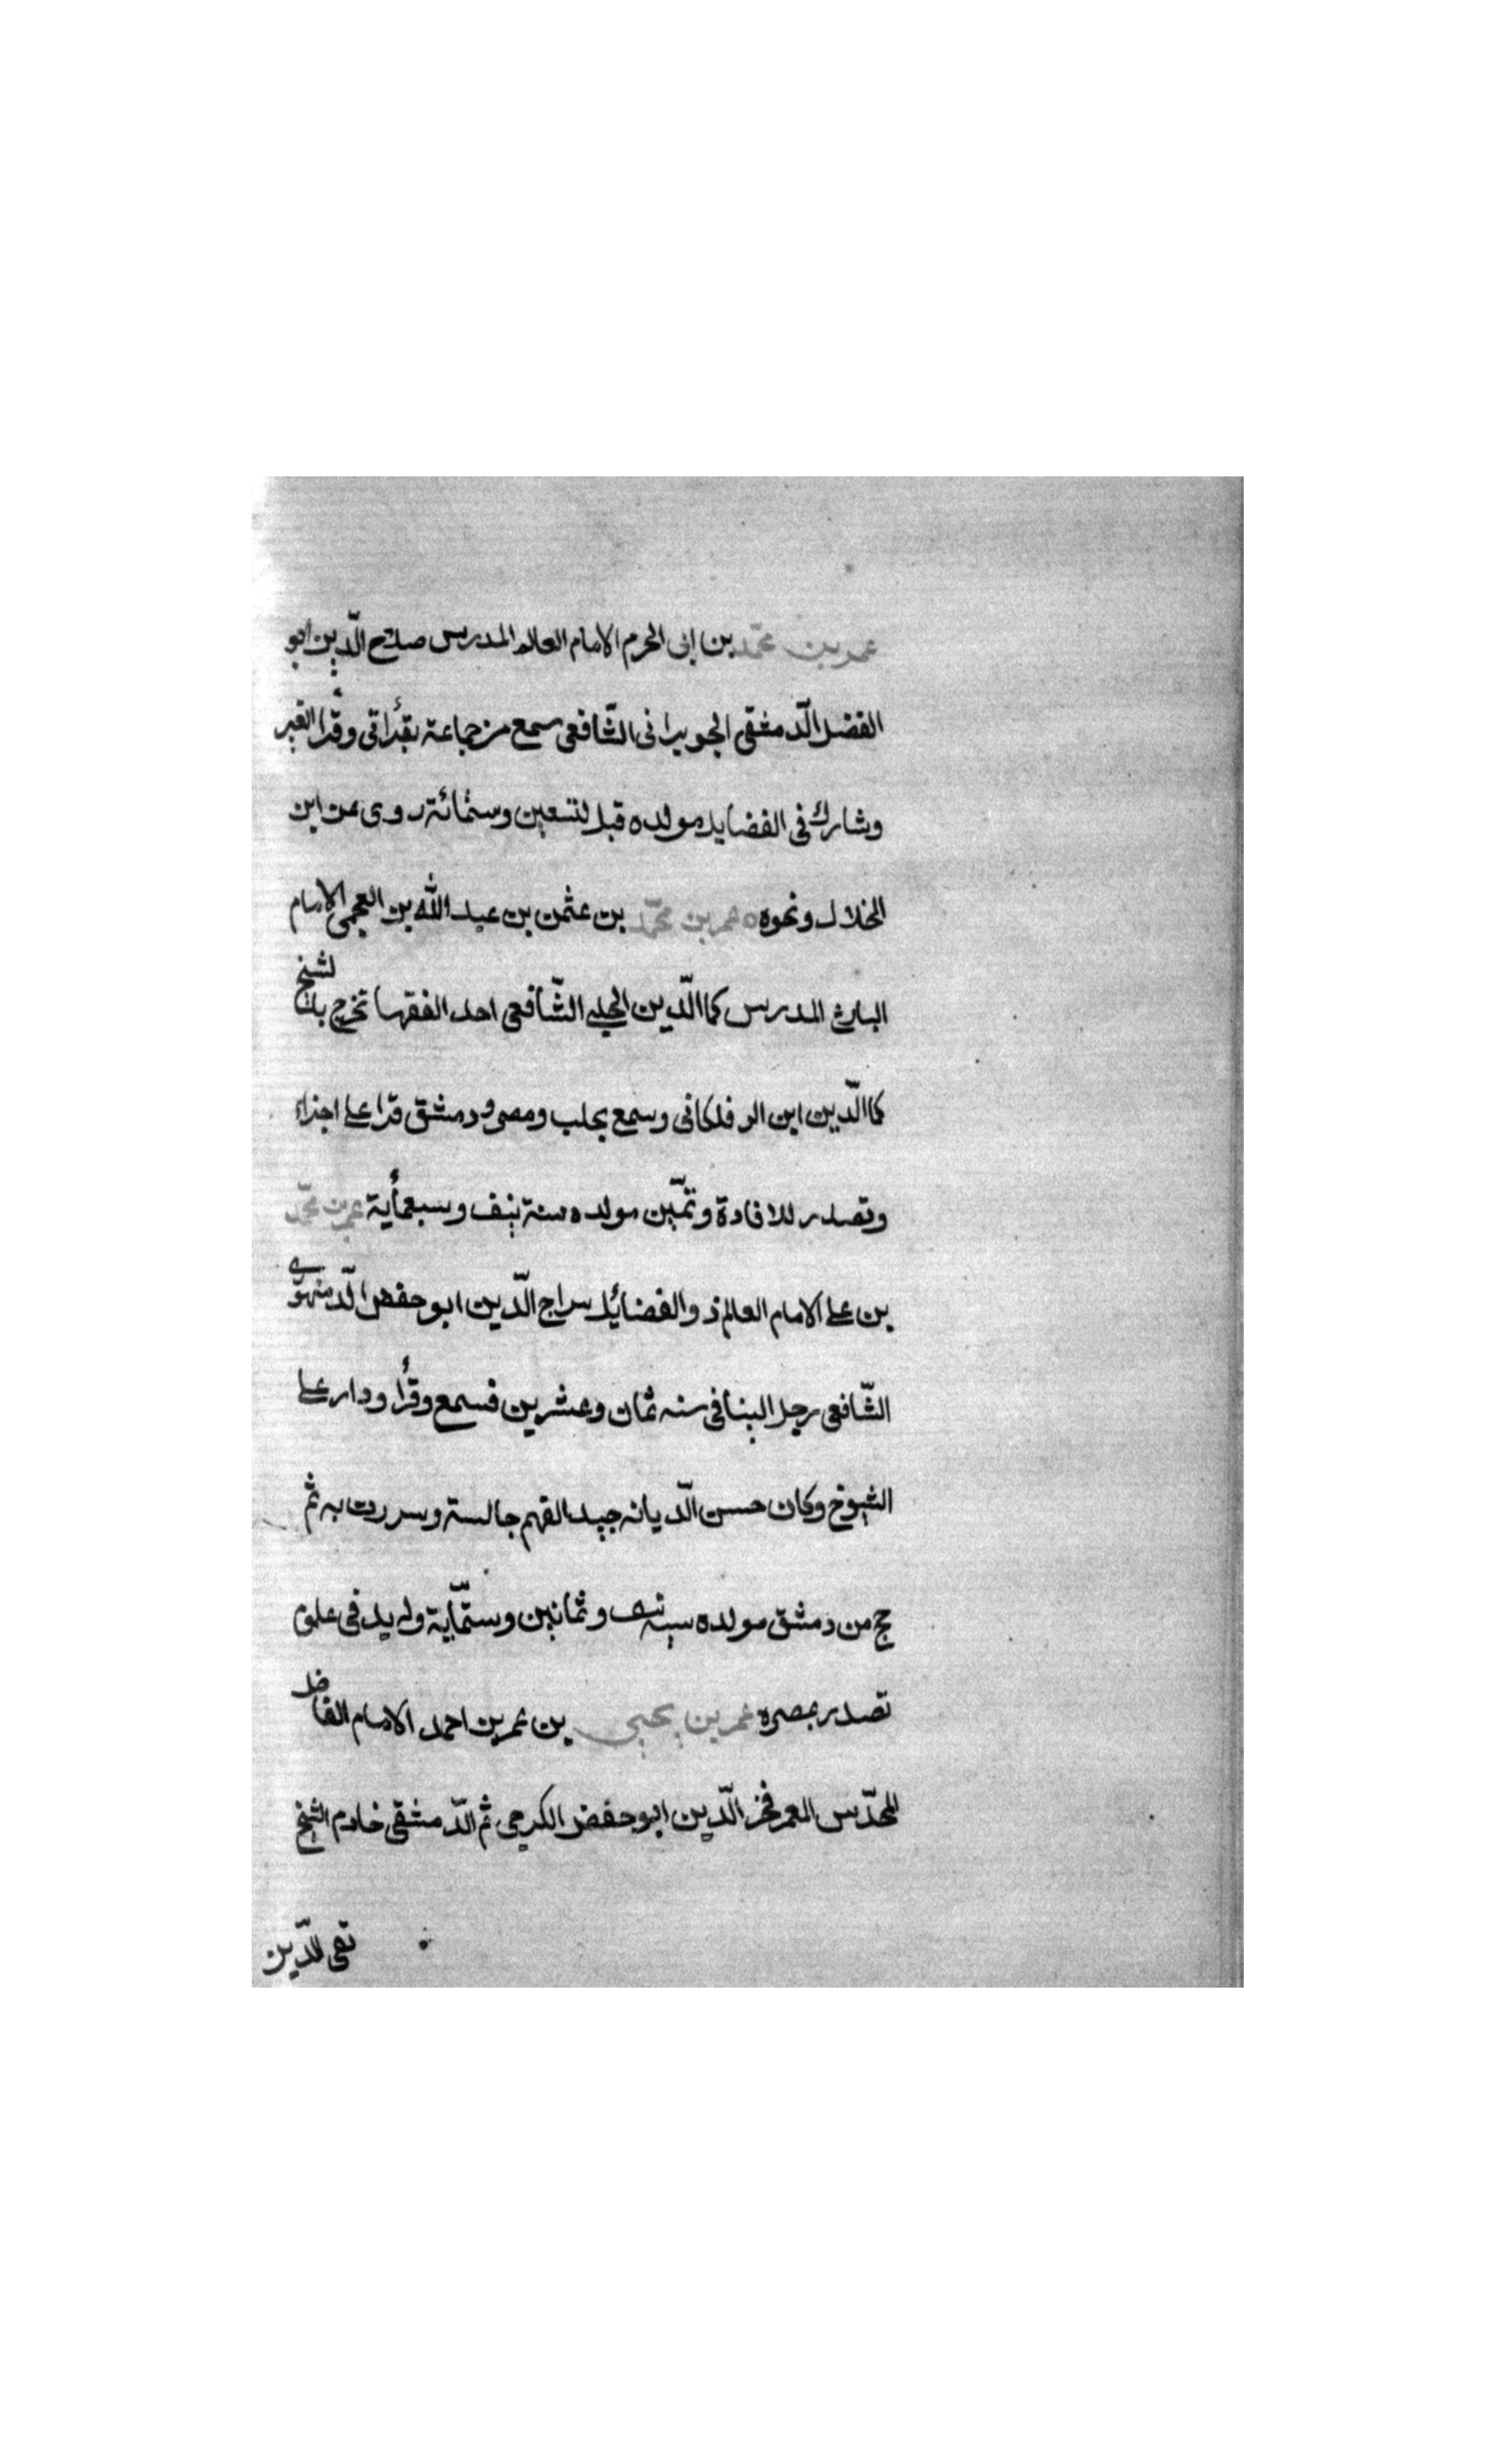 عمر بن محمّد بن ابى الحرم الامام العالم المدرس صلاح الدّين ابو
الفضل الدّمشقى الجويرانى الشّافعى سمع من جماعة بقرأتى وقرأ
وشارك فى الفضايل مولده قبل لتسعين وستمائة روى عن ابن
الخلال ونحوه ه عمر بن محمّد بن عثمن بن عبد الله بن العجمى الامام
البارع المدرس كما الدّين الحلبى الشّافعى احد الفقها تخرج بالشيخ
كما الدّين ابن الر فلكانى وسمع بحلب ومصر ودمشق قرا على اجزاء
وتصدر للافادة وتميّن مولده سنة نيف وسبعمأية عمر بن محمّد
بن على الامام العالم ذو الفضائل سراج الدّين ابو حفص الدّمنهورى
الشّافعى رجل الينا فى سنه ثمان وعشرين فسمع وقرأ ودار على
الشيوخ وكان حسن الدّيانه جيد الفهم جالسته وسررت به ثم
حج من دمشق مولده سنه نيف وثمانين وستمّاية وله يد فى علوم
تصدر بمصره عمر بن يحيى بن عمر بن احمد الامام الفاضل
المحدّس المعمر فخر الدّين ابو حفص الكرجى ثم الدّمشقى خادم الشيخ
تقى الدّين